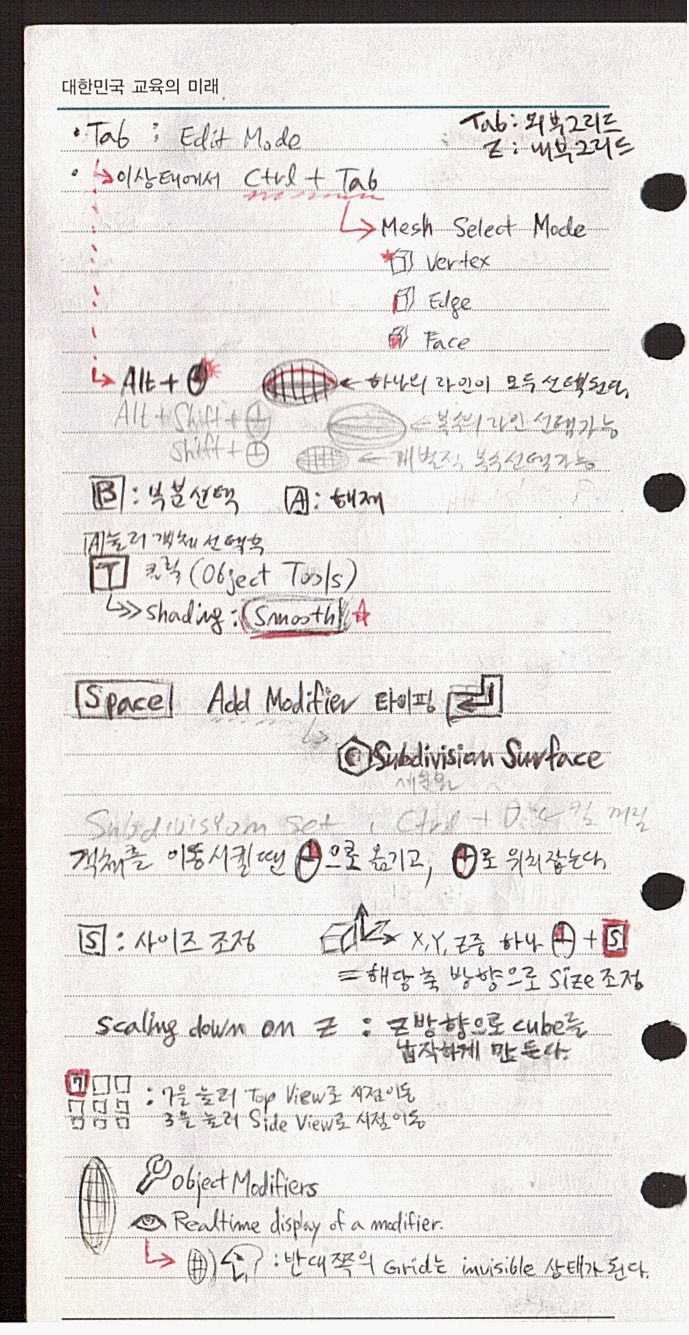 대한민국 교육의 미래
• Tab : Edit Mode
Tab : 외부그리드
Z : 내부그리드
• 이상태에서 Ctrl + Tab
Mesh Select Mode
Vertex
Edge
Face
Alt + ← 하나의 라인이 모두 선택된다.
Alt + Shift + ← 복수의 라인 선택가능
Shift + ← 개별적 복수선택가능
B : 부분선택 A : 해제
A 눌러 객체 선택후
T 클릭 (Object Tools)
Shading : Smooth
Space Add Modifier 타이핑
Subdivision Surface
세분화
Subdivisyom set : Ctrl + 0
객체를 이동시킬땐 으로 옮기고, 로 위치잡는다.
S : 사이즈 조정
X, Y, Z중 하나 + S
= 해당 축 방향으로 Size 조정
Scaling down on Z : Z방향으로 cube를
납작하게 만든다.
7
: 7을 눌러 Top View로 시점이동
3을 눌러 Side View로 시점이동
Object Modifiers
Realtime display of a modifier.
: 반대쪽의 Grid는 invisible 상태가 된다.